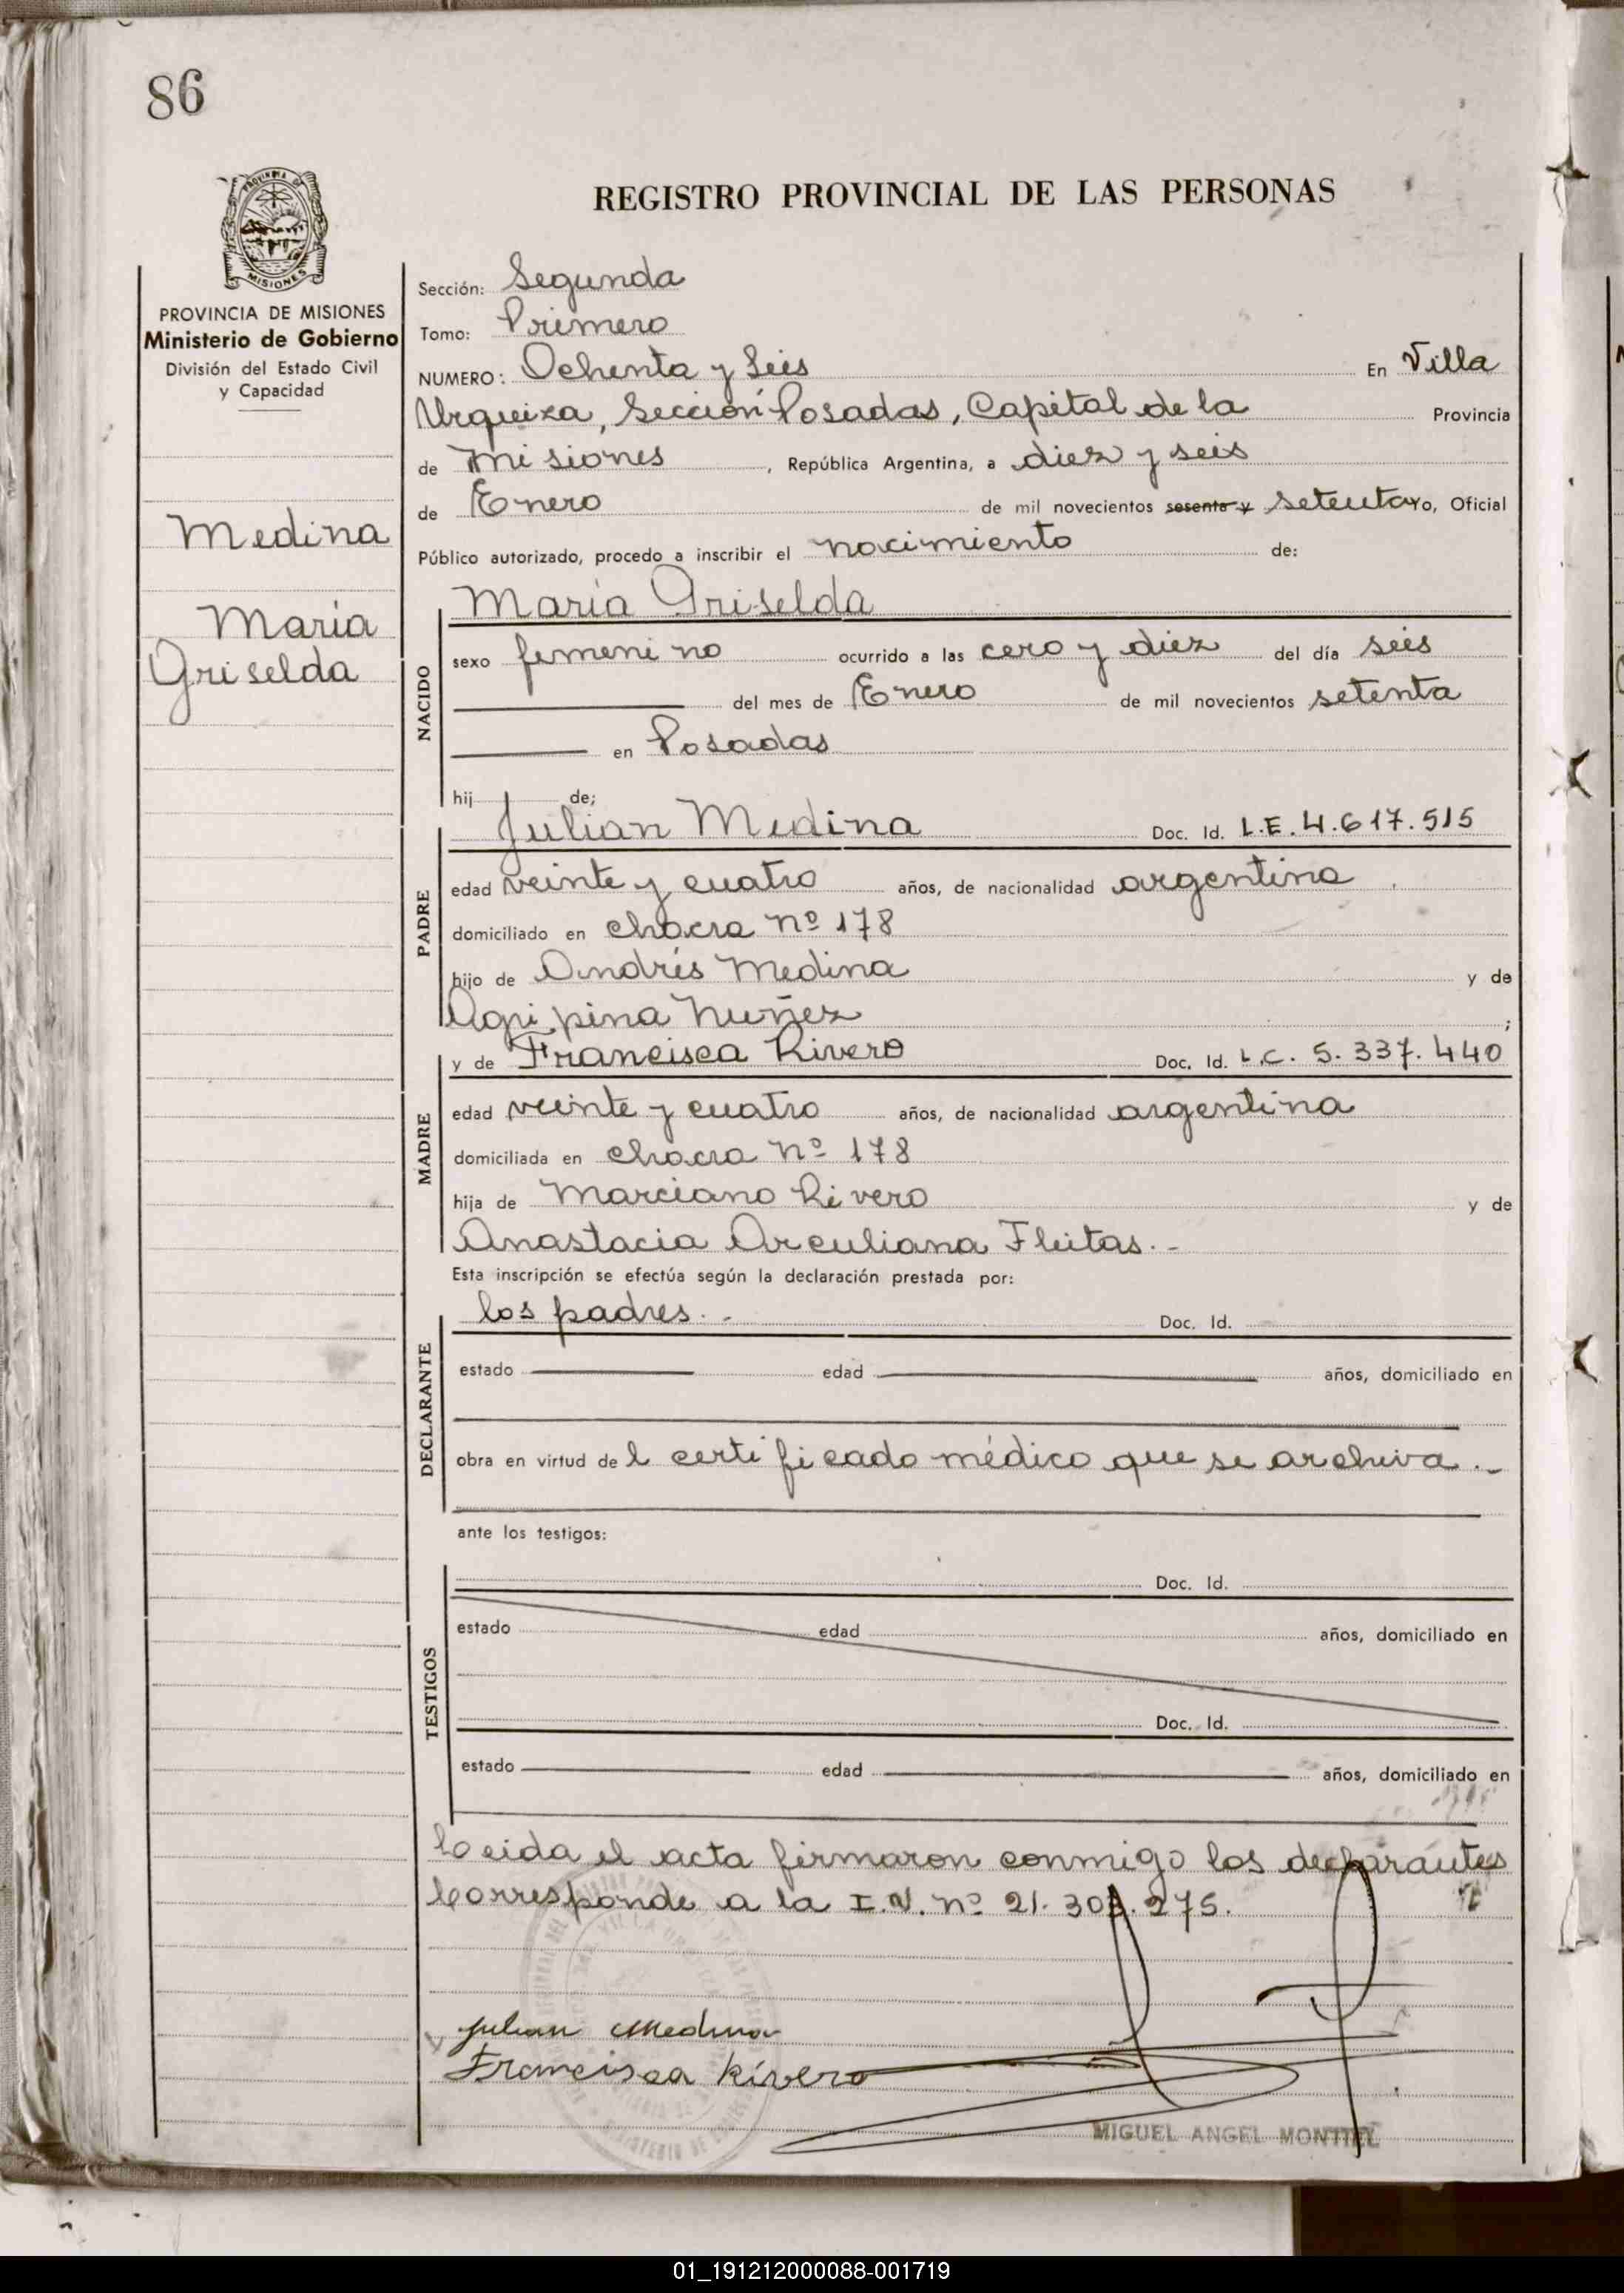 86
PROVINCIA DE MISIONES
REGISTRO PROVINCIAL DE LAS PERSONAS
PROVINCIA DE MISIONES
Ministerio de Gobierno
División del Estado Civil
y Capacidad
Medina
María
Griselda
Sección: Segunda
Tomo: Primero
NUMERO: Ochenta y Seis En Villa
Urquiza, Sección Posadas, Capital de la Provincia
de Misiones, República Argentina, a diez y seis
de Enero de mil novecientos sesenta y setenta Yo, Oficial
Público autorizado, procedo a inscribir el nacimiento de:
NACIDO
María Griselda
sexo femenino ocurrido a las cero y diez del día seis
del mes de Enero de mil novecientos setenta
en Posadas
hij de;
PADRE
Julian Medina Doc. Id. L.E. 4.617.515
edad veinte y cuatro años, de nacionalidad argentina
domiciliado en chacra nº 178
hijo de Andrés Medina y de
Agripina Nuñez ;
MADRE
y de Francisca Rivero Doc. Id. L.C. 5.337.440
edad veinte y cuatro años, de nacionalidad argentina
domiciliada en chacra nº 178
hija de Marciano Rivero y de
Anastacia Arculiana Fleitas.-
Esta inscripción se efectúa según la declaración prestada por:
DECLARANTE
los padres.- Doc. Id.
estado edad años, domiciliado en
obra en virtud del certificado médico que se archiva.-
ante los testigos:
TESTIGOS
Doc. Id.
estado edad años, domiciliado en
Doc. Id.
estado edad años, domiciliado en
Leida el acta firmaron conmigo los declarantes
Corresponde a la I.N. nº 21.303.275.
Julian Medina
Francisca Rivero
MIGUEL ANGEL MONTIEL
01_191212000088-001719